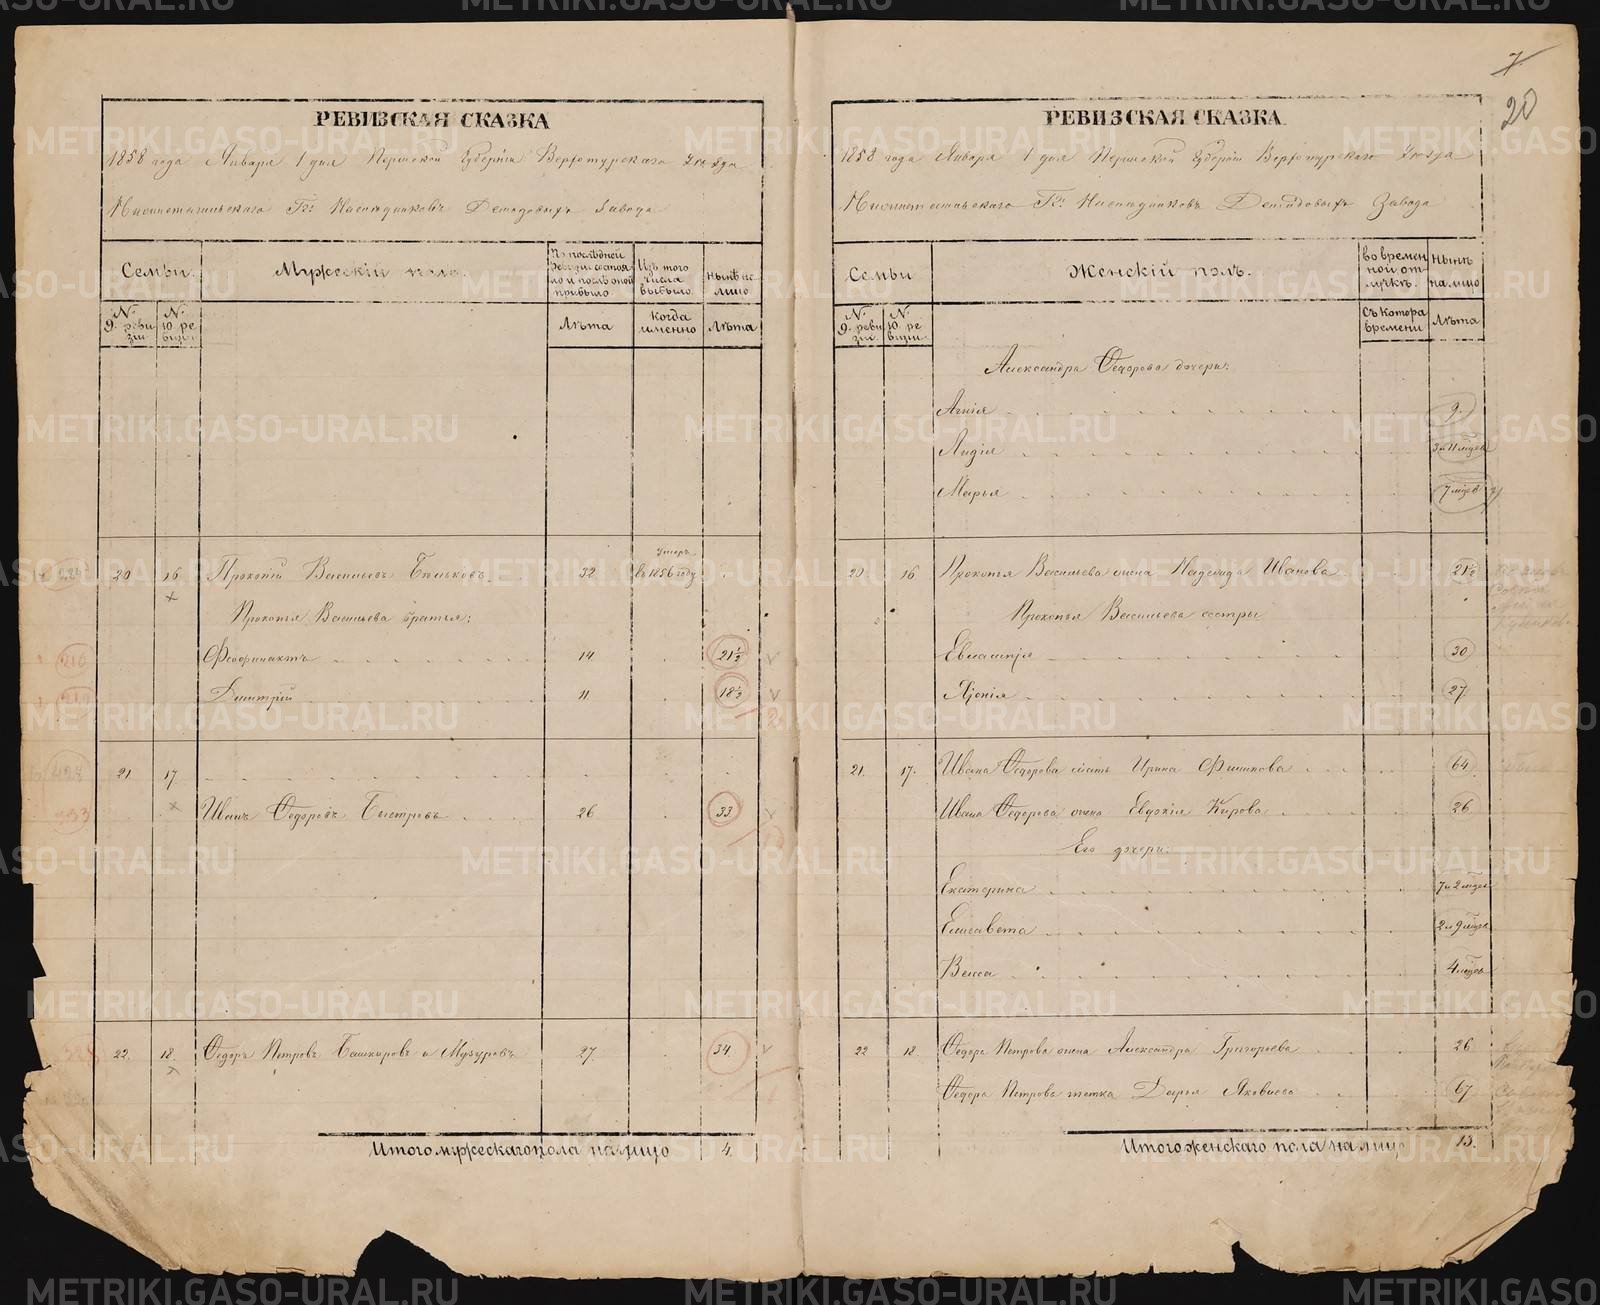 7
20
РЕВИЗСКАЯ СКАЗКА
1858 года Января 1 дня Пермской Губернiи Верхотурскаго Уѣзда
Нижнетагильскаго Гг: Наслѣдниковъ Демидовыхъ Завода
Семьи.
Мужескiй полъ.
По послѣдней ревизiи состояло и послѣ оной прибыло.
Изъ того числа выбыло.
Нынѣ на лицо.
№ 9. ревизiи
№ 10 ревизiи
Лѣта
Когда именно
Лѣта
20 16 Прокопiй Васильевъ Бѣльковъ. 32 Умеръ въ 1856 году
Прокопья Васильева братья:
216 Феофилактъ 14 21½
Дмитрiй 11 18½
21 17
Иванъ Ѳедоровъ Быстровъ 26 33
22. 18. Ѳедоръ Петровъ Башкировъ и Музуровъ 27. 34.
Итого мужескаго пола на лицо 4.
РЕВИЗСКАЯ СКАЗКА
1858 года Января 1 дня Пермской Губернiи Верхотурскаго Уѣзда
Нижнетагильскаго Гг: Наслѣдниковъ Демидовыхъ Завода
Семьи
Женскiй полъ.
Во временной отлучкѣ.
Нынѣ на лицо
№ 9. ревизiи.
№ 10 ревизiи
Съ котора времени
Лѣта
Александра Ѳедорова дочери:
Агнiя 9.
Лидiя 3 и 11 мѣцев
Марья 7 мѣцев
20. 16 Прокопья Васильева жена Надежда Иванова 21½
Прокопья Васильева сестры
Евлампiя 30
Афонiя 27.
21. 17. Ивана Ѳедорова мать Ирина Филипова 64
Ивана Ѳедорова жена Евдокiя Кирова 26
Его дочери:
Екатерина 7 и 2 мѣцев
Елисавета 2 и 9 мѣцев
Васса 4 мѣцев
22 18. Ѳедора Петрова жена Александра Григорьева 26
Ѳедора Петрова тетка Дарья Яковлева 67
Итого женскаго пола на лицо 13.
METRIKI.GASO-URAL.RU